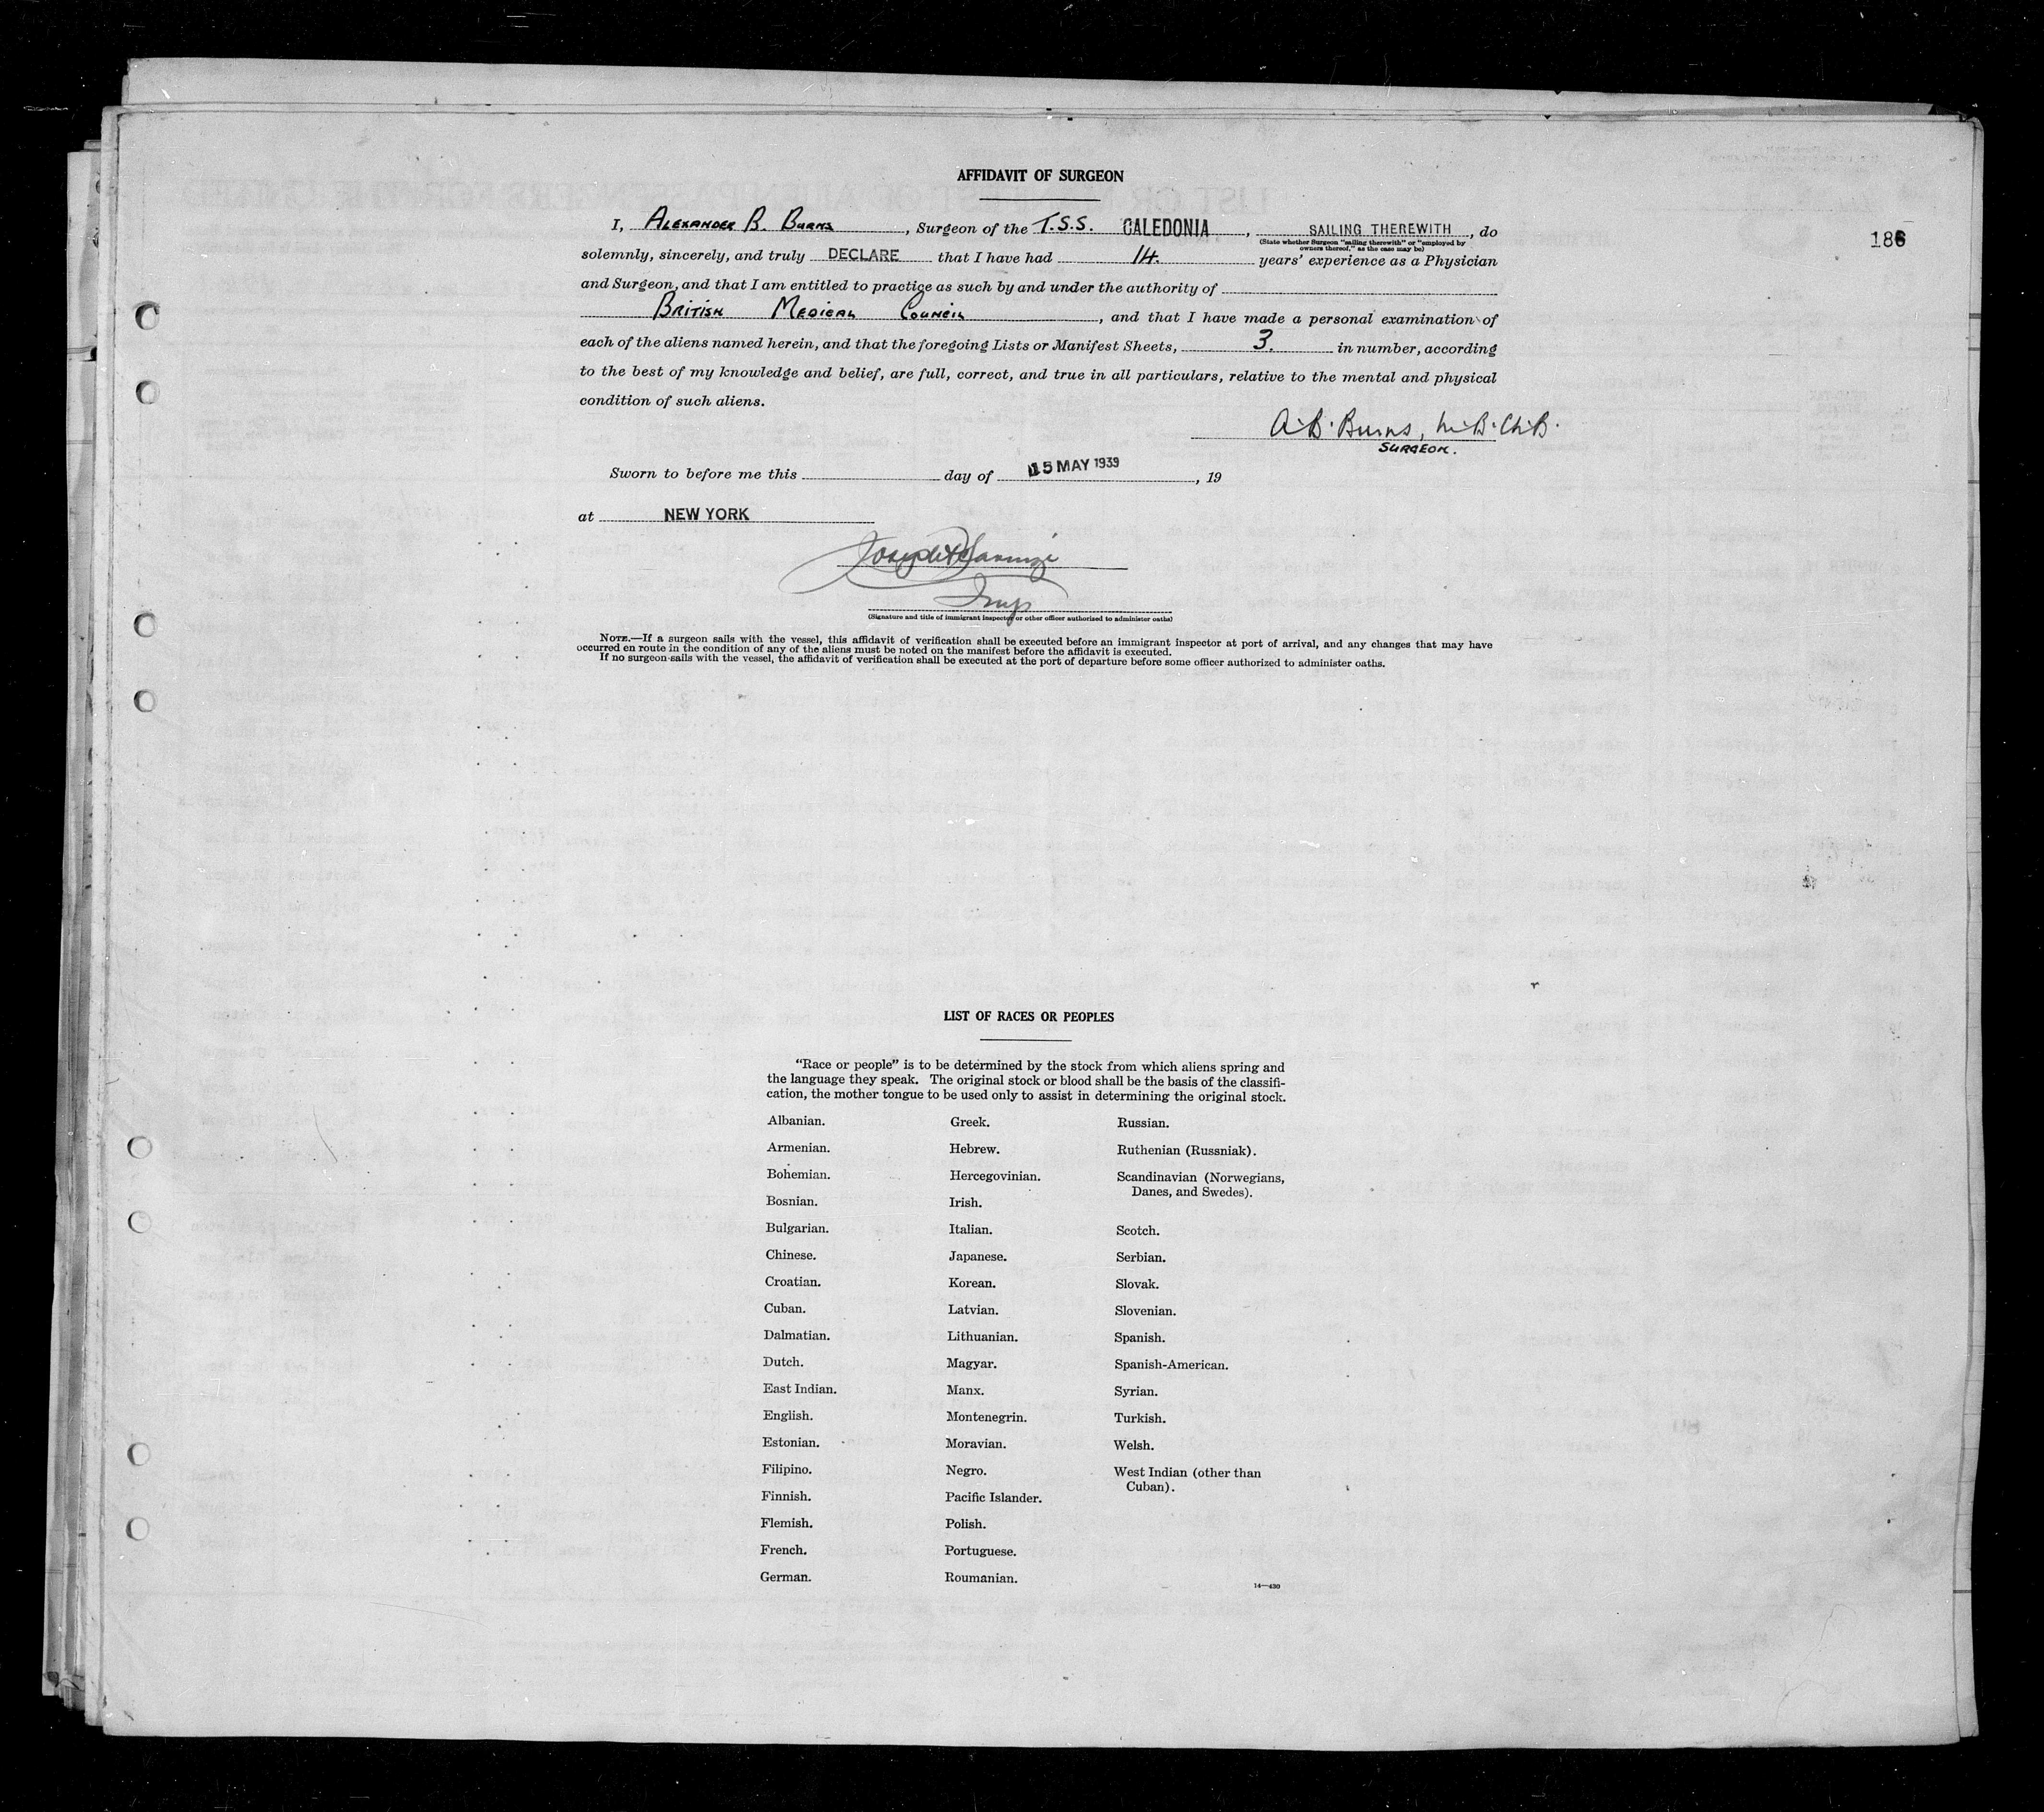 AFFIDAVIT OF SURGEON
186
I, ALEXANDER B. BURNS, Surgeon of the T.S.S. CALEDONIA, SAILING THEREWITH, do
(State whether Surgeon "sailing therewith" or "employed by owners thereof," as the case may be)
solemnly, sincerely, and truly DECLARE that I have had 14. years' experience as a Physician
and Surgeon, and that I am entitled to practice as such by and under the authority of
BRITISH MEDICAL COUNCIL, and that I have made a personal examination of
each of the aliens named herein, and that the foregoing Lists or Manifest Sheets, 3. in number, according
to the best of my knowledge and belief, are full, correct, and true in all particulars, relative to the mental and physical
condition of such aliens.
A.B. Burns, M.B. Ch.B.
SURGEON.
Sworn to before me this day of 15 MAY 1939, 19
at NEW YORK
Insp
(Signature and title of immigrant inspector or other officer authorized to administer oaths)
NOTE.—If a surgeon sails with the vessel, this affidavit of verification shall be executed before an immigrant inspector at port of arrival, and any changes that may have
occurred en route in the condition of any of the aliens must be noted on the manifest before the affidavit is executed.
If no surgeon sails with the vessel, the affidavit of verification shall be executed at the port of departure before some officer authorized to administer oaths.
LIST OF RACES OR PEOPLES
"Race or people" is to be determined by the stock from which aliens spring and
the language they speak. The original stock or blood shall be the basis of the classifi-
cation, the mother tongue to be used only to assist in determining the original stock.
Albanian.
Armenian.
Bohemian.
Bosnian.
Bulgarian.
Chinese.
Croatian.
Cuban.
Dalmatian.
Dutch.
East Indian.
English.
Estonian.
Filipino.
Finnish.
Flemish.
French.
German.
Greek.
Hebrew.
Hercegovinian.
Irish.
Italian.
Japanese.
Korean.
Latvian.
Lithuanian.
Magyar.
Manx.
Montenegrin.
Moravian.
Negro.
Pacific Islander.
Polish.
Portuguese.
Roumanian.
Russian.
Ruthenian (Russniak).
Scandinavian (Norwegians,
Danes, and Swedes).
Scotch.
Serbian.
Slovak.
Slovenian.
Spanish.
Spanish-American.
Syrian.
Turkish.
Welsh.
West Indian (other than
Cuban).
14—430